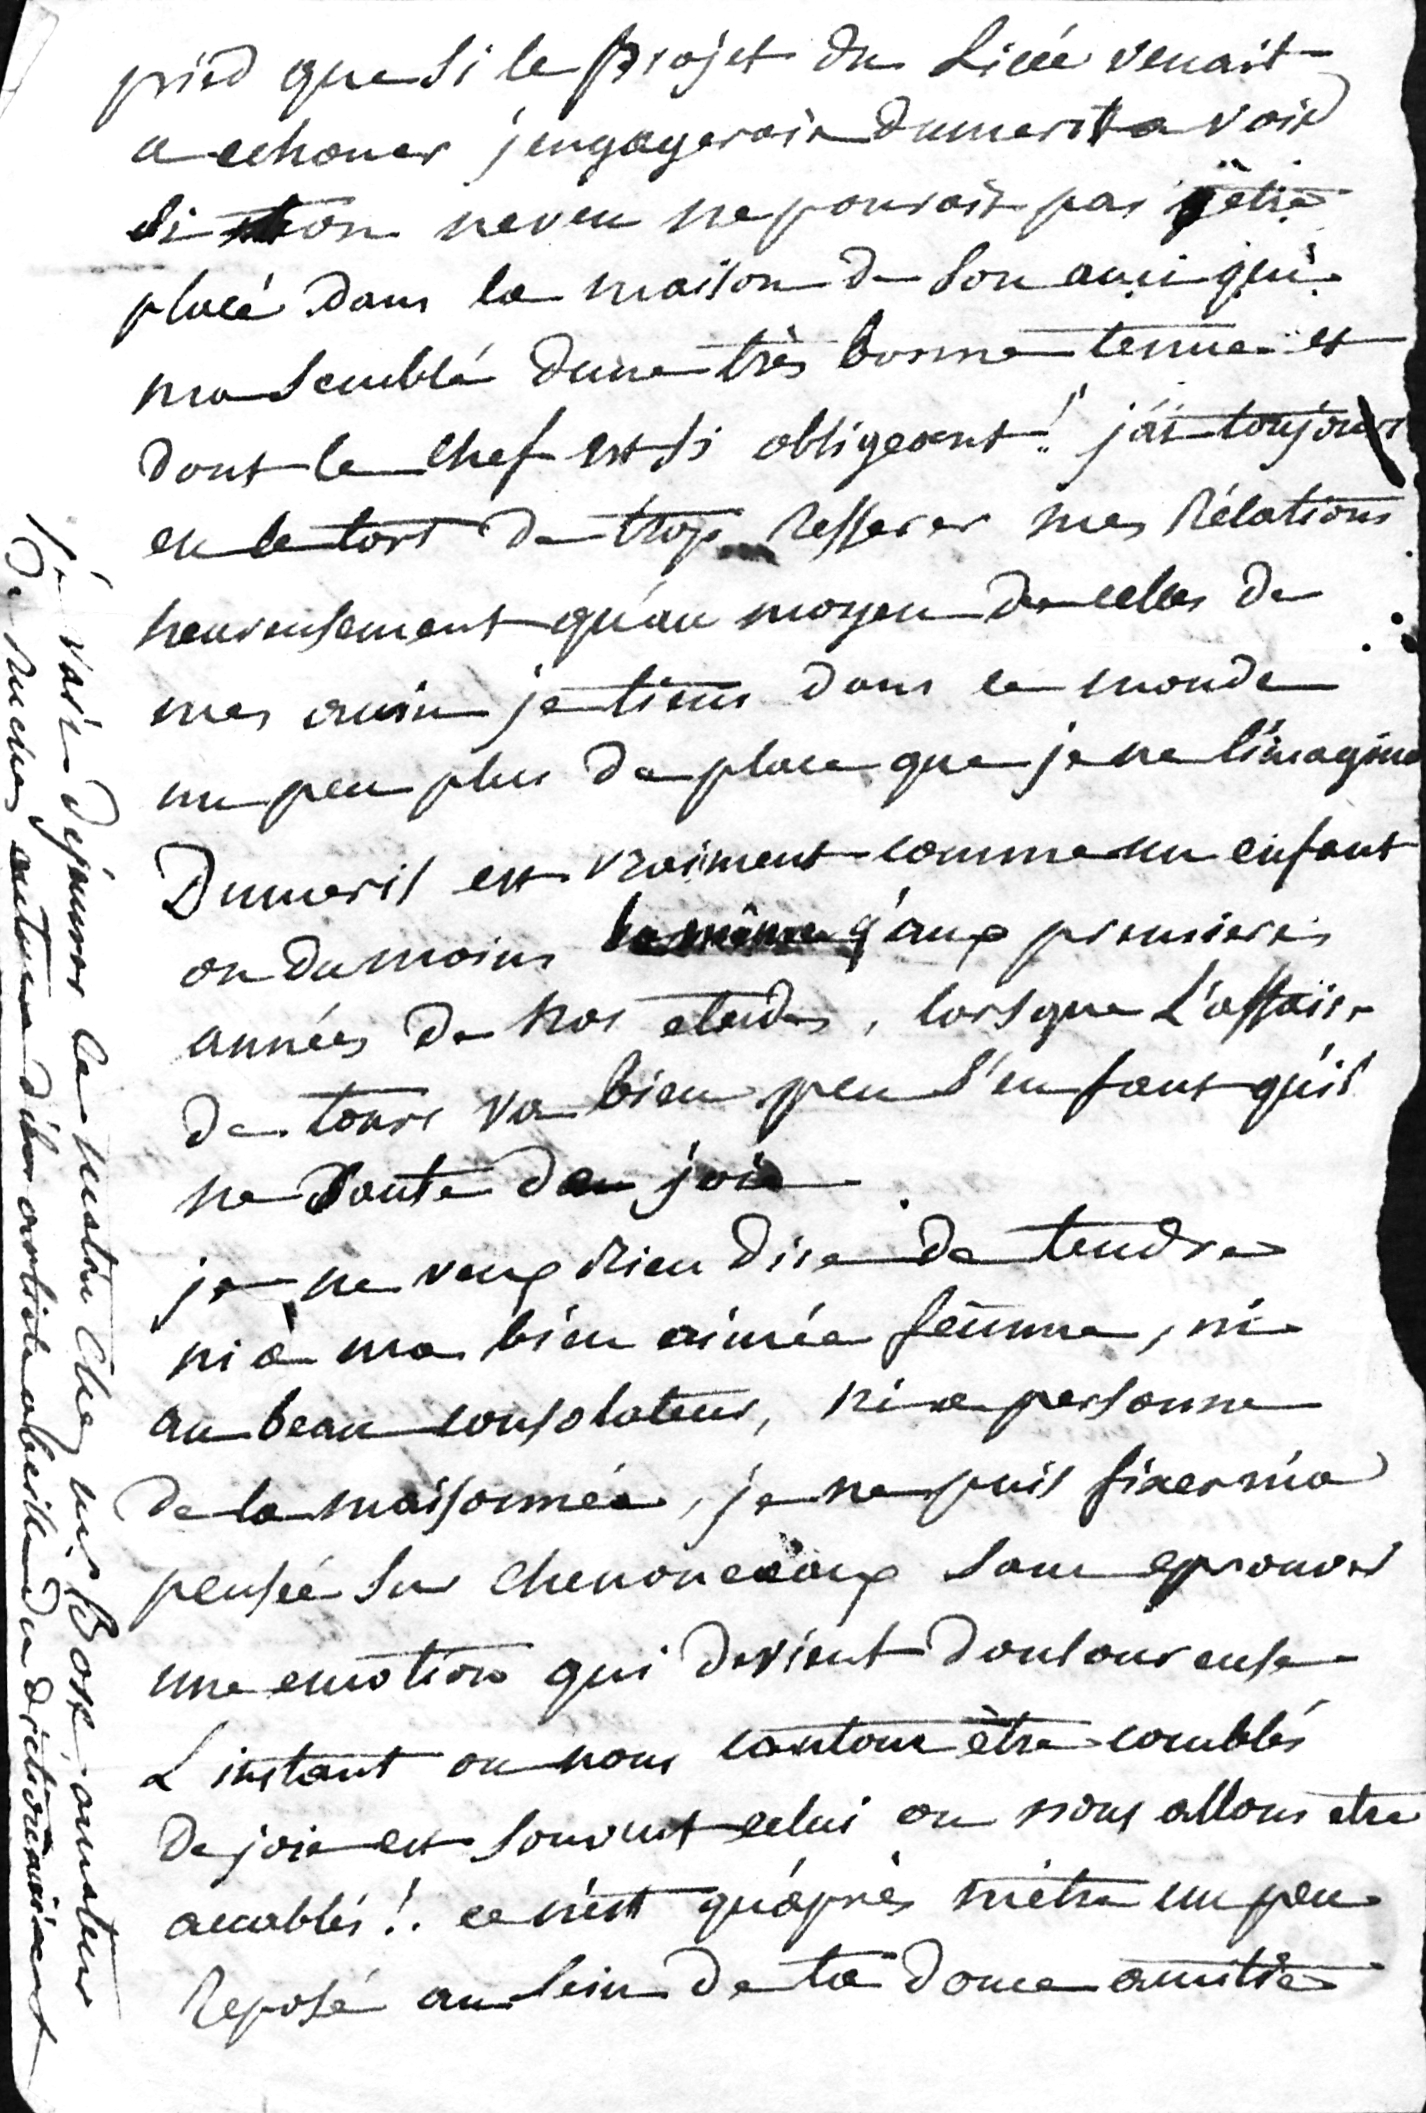 pied que si le projet du Licée venait
a echouer j'engagerais dumeril a voir
si ton neveu ne pourait pas être
placé dans la maison de son ami qui
ma semblé dune très bonne tenue et
dont le chef est si obligeant! j'ai toujours
eu le tort de trop resserer mes rélations
heureusement qu'au moyen de celles de
mes amis je tiens dans le monde
un peu plus de place que je ne l'imagine
Dumeril est vraiment comme un enfant
ou du moins q'aux premieres
années de nos etudes, lorsque L'affaire
de tours va bien peu s'en faut qu'il
ne saute de joie
je ne veux rien dire de tendre
ni à ma bien aimée femme, ni
au beau consolateur, ni a personne
de la maisonnée, je ne puis fixer ma
pensée sur chenonceaux sans eprouver
une emotion qui devient douloureuse
L'instant ou nous contons être comblés
de joie est souvent celui ou nous allons etre
accablés! ce n'est qu'après m'être un peu
reposé au sein de ta douce amitié
je vais dejeuner ce matin chez mr Bosc amateur
de ruches auteur d'un article abeille du dictionnaire